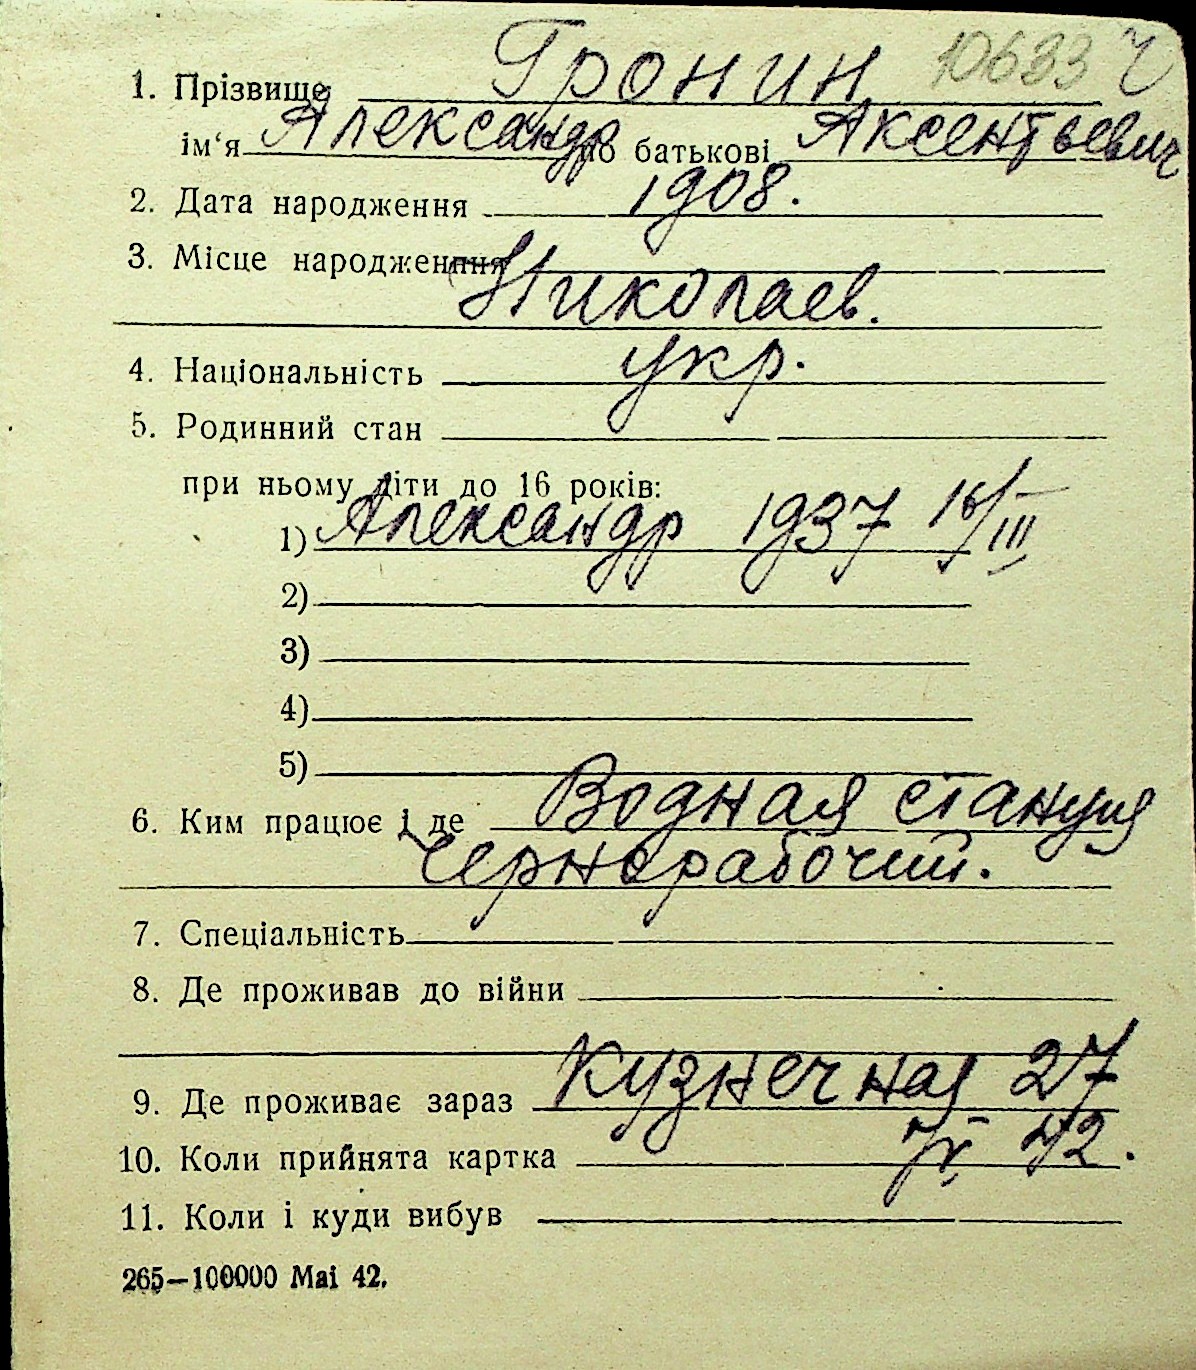 10633 ч
1. Прізвище Гронин
ім'я Александр по батькові Аксентьевич
2. Дата народження 1908.
3. Місце народження
Николаев.
4. Національність укр.
5. Родинний стан
при ньому діти до 16 років:
1) Александр 1937 16/III
2)
3)
4)
5)
6. Ким працює і де Водная станция
Чернорабочий.
7. Спеціальність
8. Де проживав до війни
9. Де проживає зараз Кузнечная 27
10. Коли прийнята картка 42.
11. Коли і куди вибув
265—100000 Mai 42.